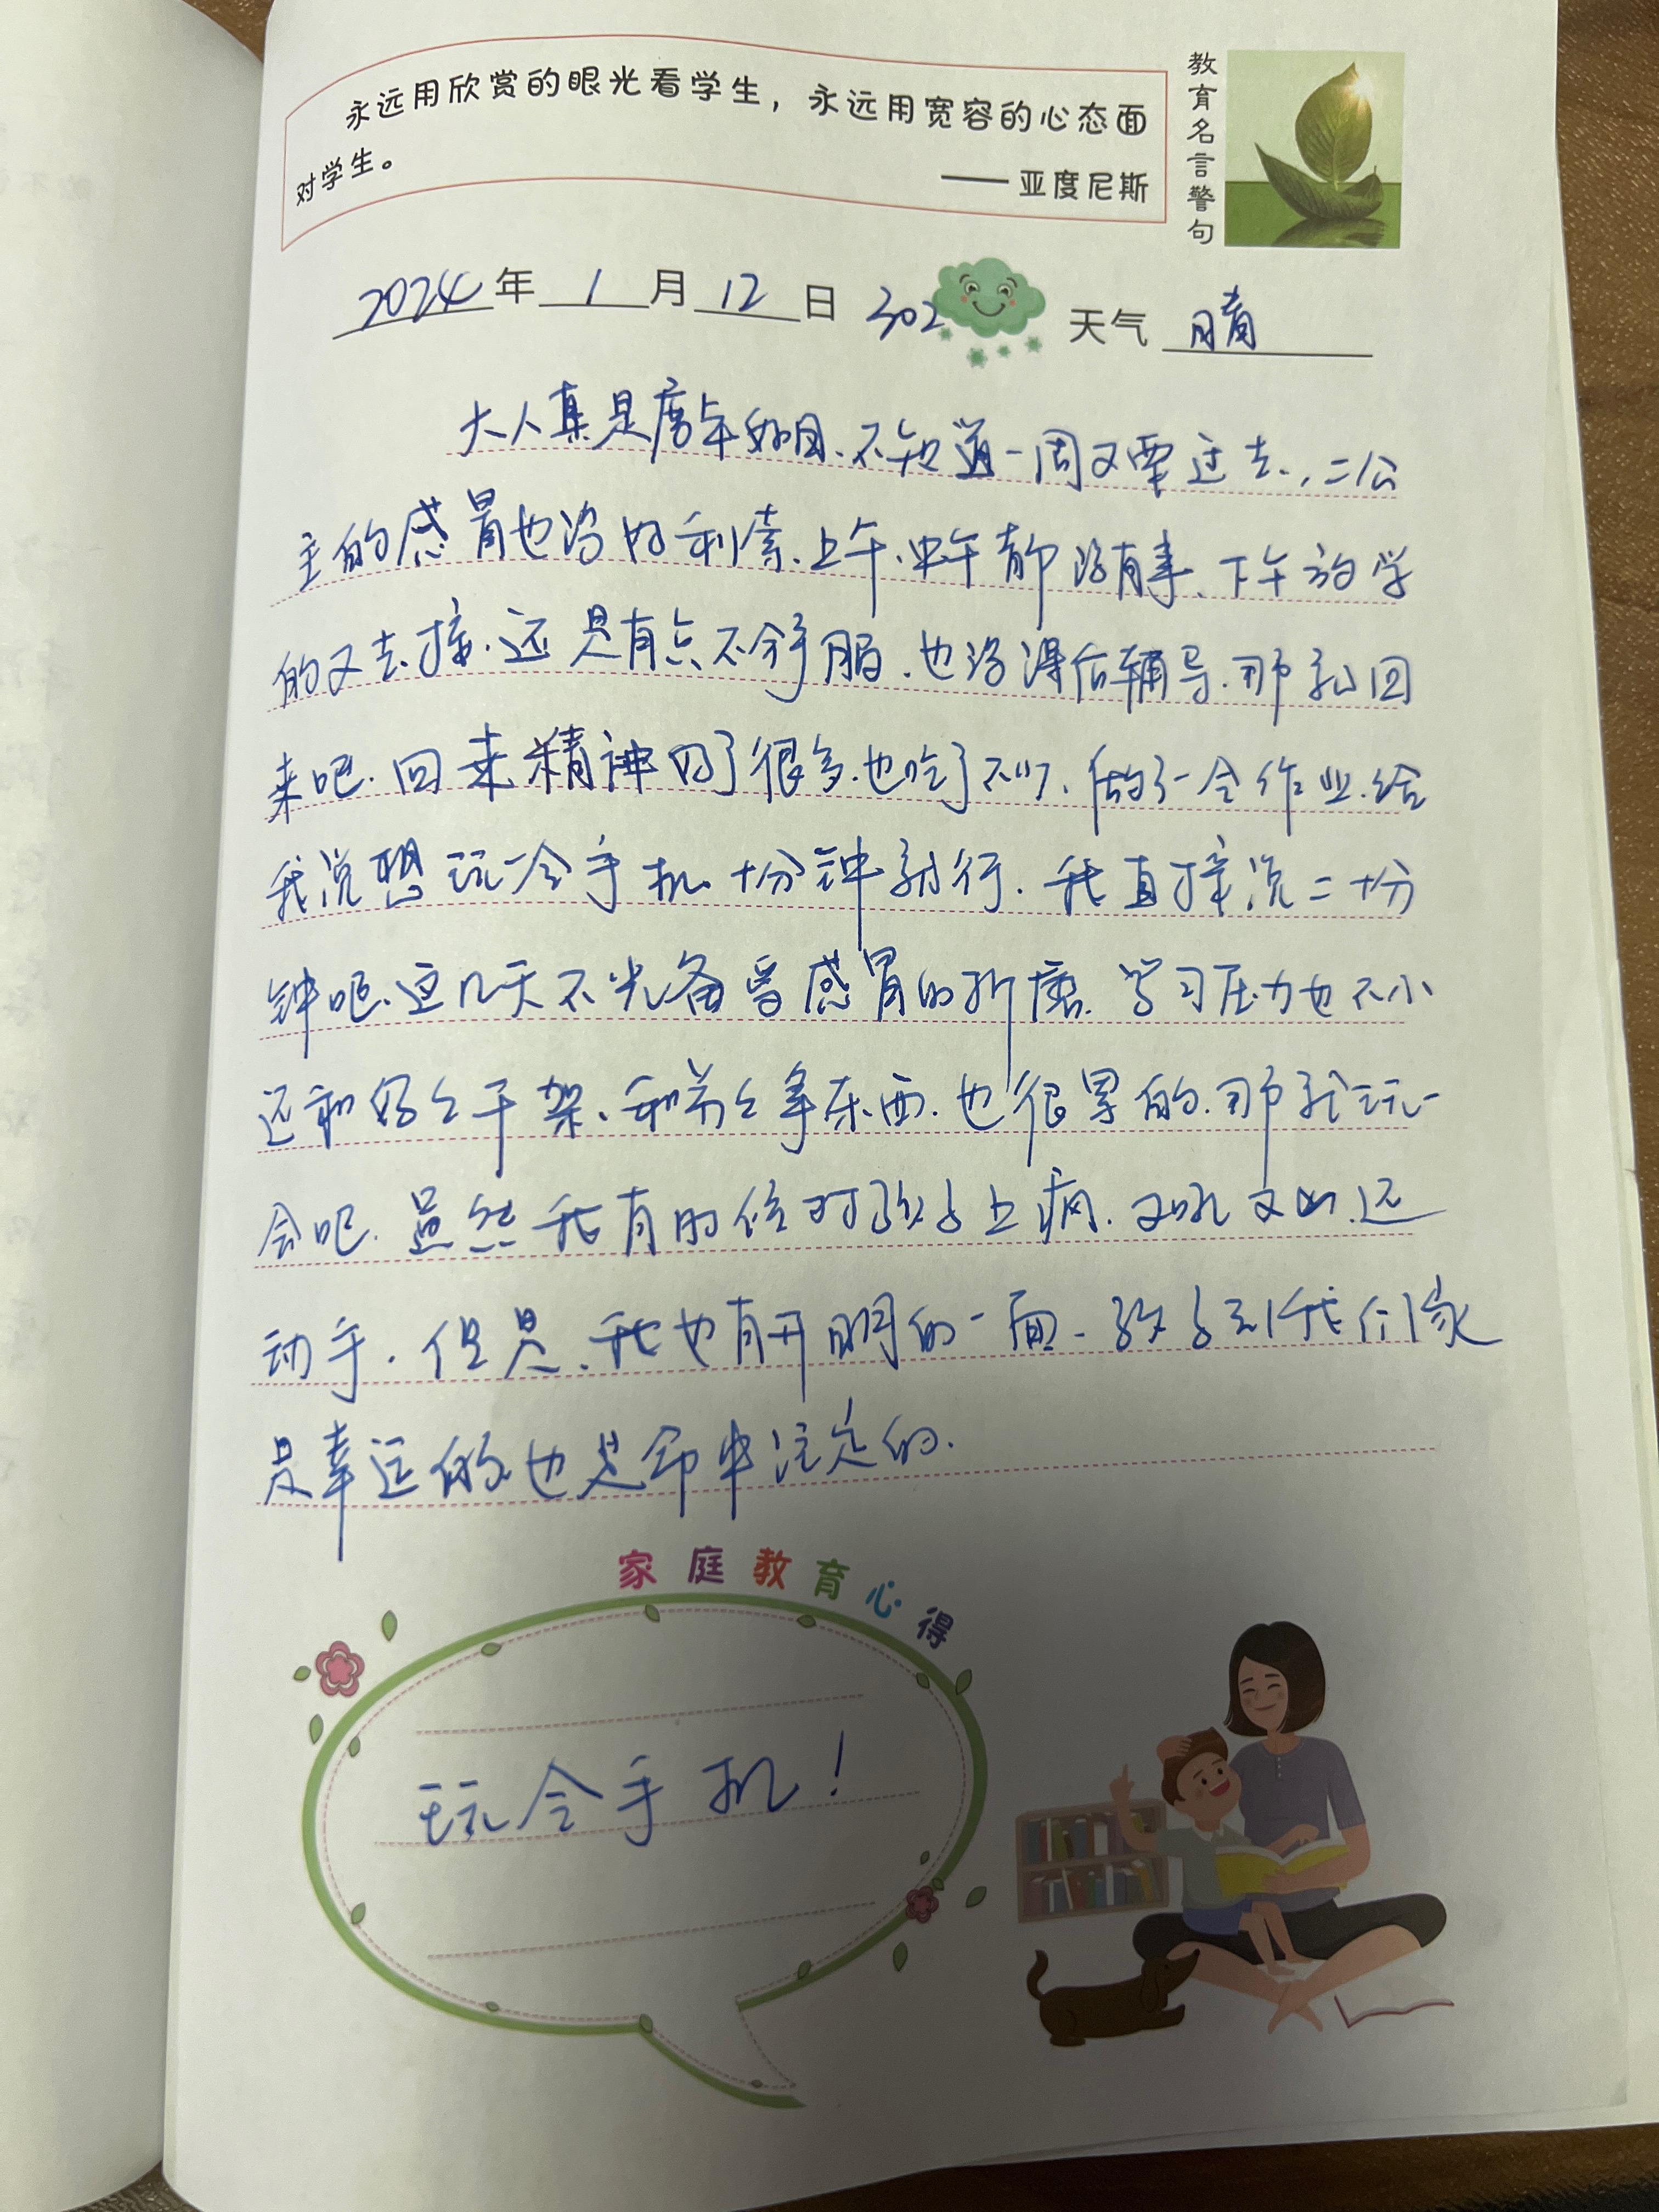 永远用欣赏的眼光看学生，永远用宽容的心态面
对学生。
——亚度尼斯
教育名言警句
2024年1月12日 302 天气 晴
大人真是度年如日、不知道一周又要过去，二公
主的感冒也没好利索、上午、中午都没有事、下午放学
的又去接、还是有点不舒服、也没课后辅导、那就回
来吧、回来精神好了很多、也吃了不少、做了一会作业、给
我说想玩一会手机、十分钟就行、我直接说二十分
钟吧、这几天不光备受感冒的折磨、学习压力也不小
还和好好干架、和弟弟争东西、也很累的、那就玩一
会吧、虽然我有时候对孩子上火、又吼又、还
动手、但是、我也有开明的一面、孩子到我们家
是幸运的、也是命中注定的.
家庭教育心得
玩会手机！